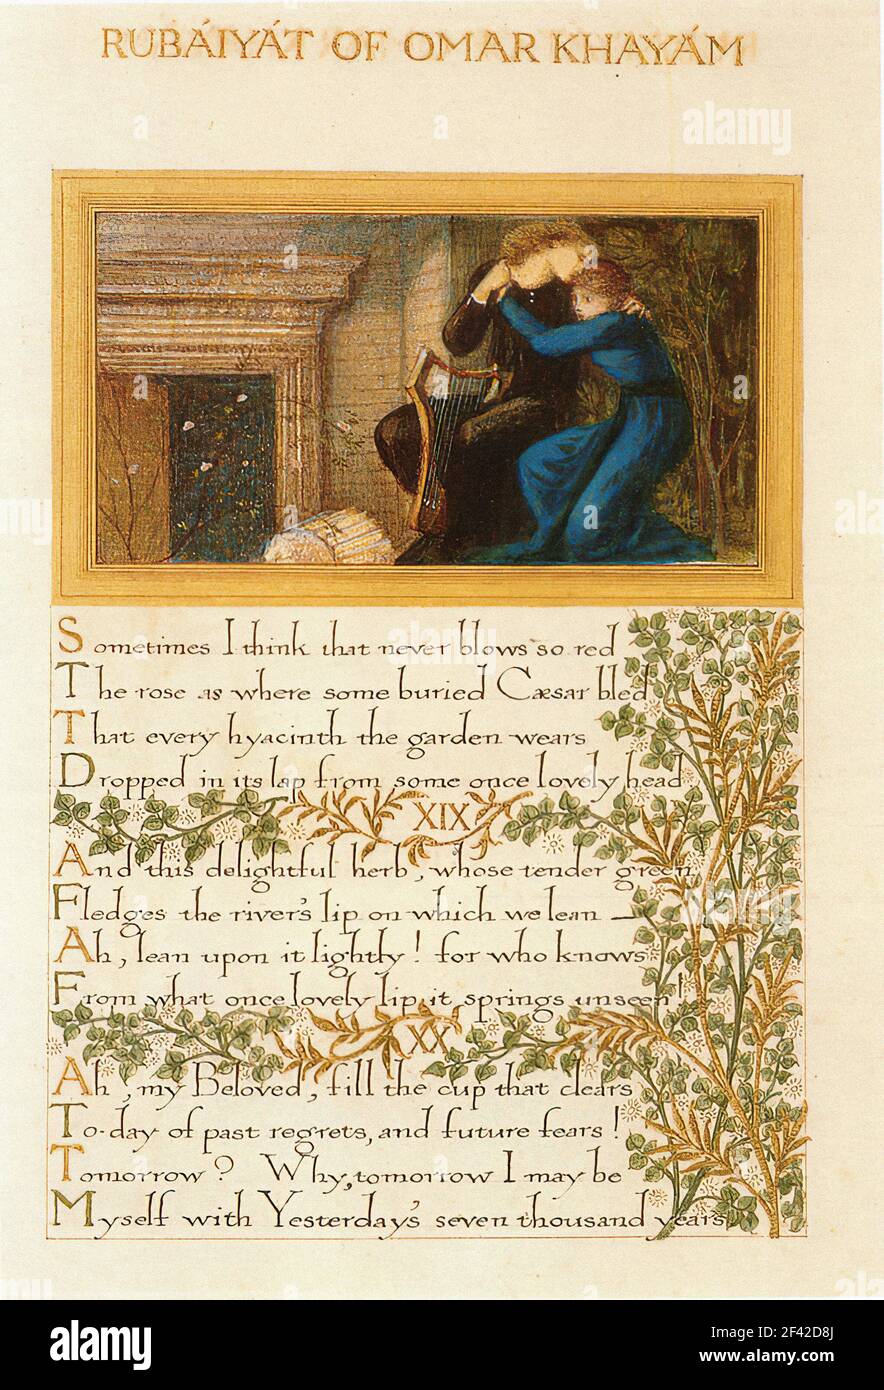 RUBÁIYÁT OF OMAR KHAYÁM
Sometimes I think that never blows so red
The rose as where some buried Cæsar bled
That every hyacinth the garden wears
Dropped in its lap from some once lovely head
XIX
And this delightful herb, whose tender green
Fledges the river's lip on which we lean —
Ah, lean upon it lightly! for who knows
From what once lovely lip it springs unseen!
XX
Ah, my Beloved, fill the cup that clears
To-day of past regrets, and future fears!
Tomorrow? Why, tomorrow I may be
Myself with Yesterday's seven thousand years
alamy
a
a
alamy
a
alamy
a
alamy
a
alamy
Image ID: 2F42D8J
www.alamy.com